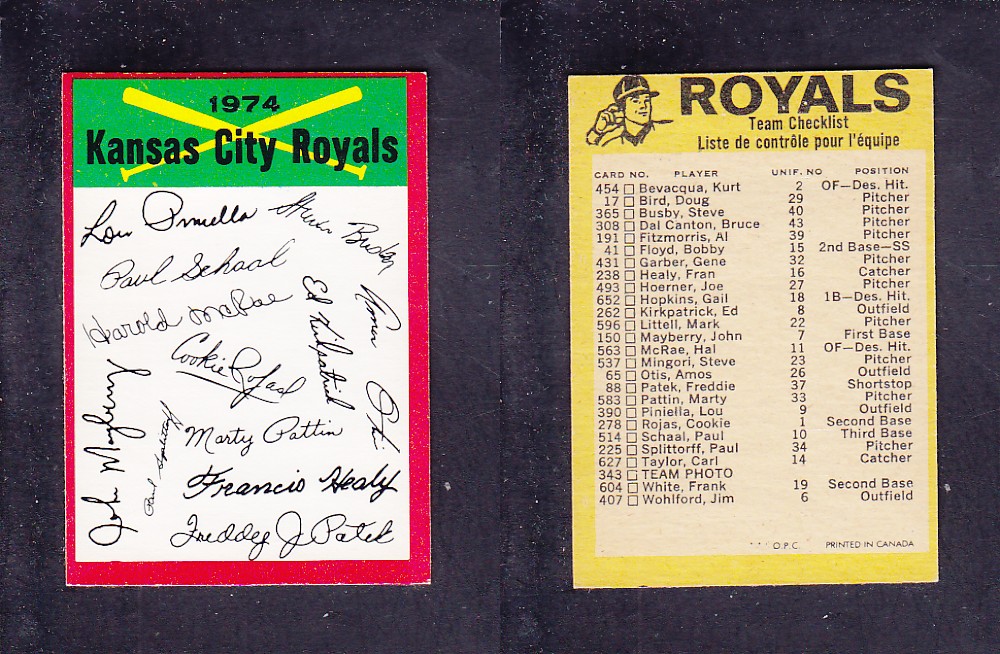 1974
Kansas City Royals
Lou Piniella
Steve Busby
Paul Schaal
Harold McRae
Ed Kirkpatrick
Amos Otis
Cookie Rojas
John Mayberry
Paul Splittorff
Marty Pattin
Francis Healy
Freddy J Patek
ROYALS
Team Checklist
Liste de contrôle pour l'équipe
CARD NO. PLAYER UNIF. NO POSITION
454 Bevacqua, Kurt 2 OF—Des. Hit.
17 Bird, Doug 29 Pitcher
365 Busby, Steve 40 Pitcher
308 Dal Canton, Bruce 43 Pitcher
191 Fitzmorris, Al 39 Pitcher
41 Floyd, Bobby 15 2nd Base—SS
431 Garber, Gene 32 Pitcher
238 Healy, Fran 16 Catcher
493 Hoerner, Joe 27 Pitcher
652 Hopkins, Gail 18 1B—Des. Hit.
262 Kirkpatrick, Ed 8 Outfield
596 Littell, Mark 22 Pitcher
150 Mayberry, John 7 First Base
563 McRae, Hal 11 OF—Des. Hit.
537 Mingori, Steve 23 Pitcher
65 Otis, Amos 26 Outfield
88 Patek, Freddie 37 Shortstop
583 Pattin, Marty 33 Pitcher
390 Piniella, Lou 9 Outfield
278 Rojas, Cookie 1 Second Base
514 Schaal, Paul 10 Third Base
225 Splittorff, Paul 34 Pitcher
627 Taylor, Carl 14 Catcher
343 TEAM PHOTO
604 White, Frank 19 Second Base
407 Wohlford, Jim 6 Outfield
O.P.C. PRINTED IN CANADA